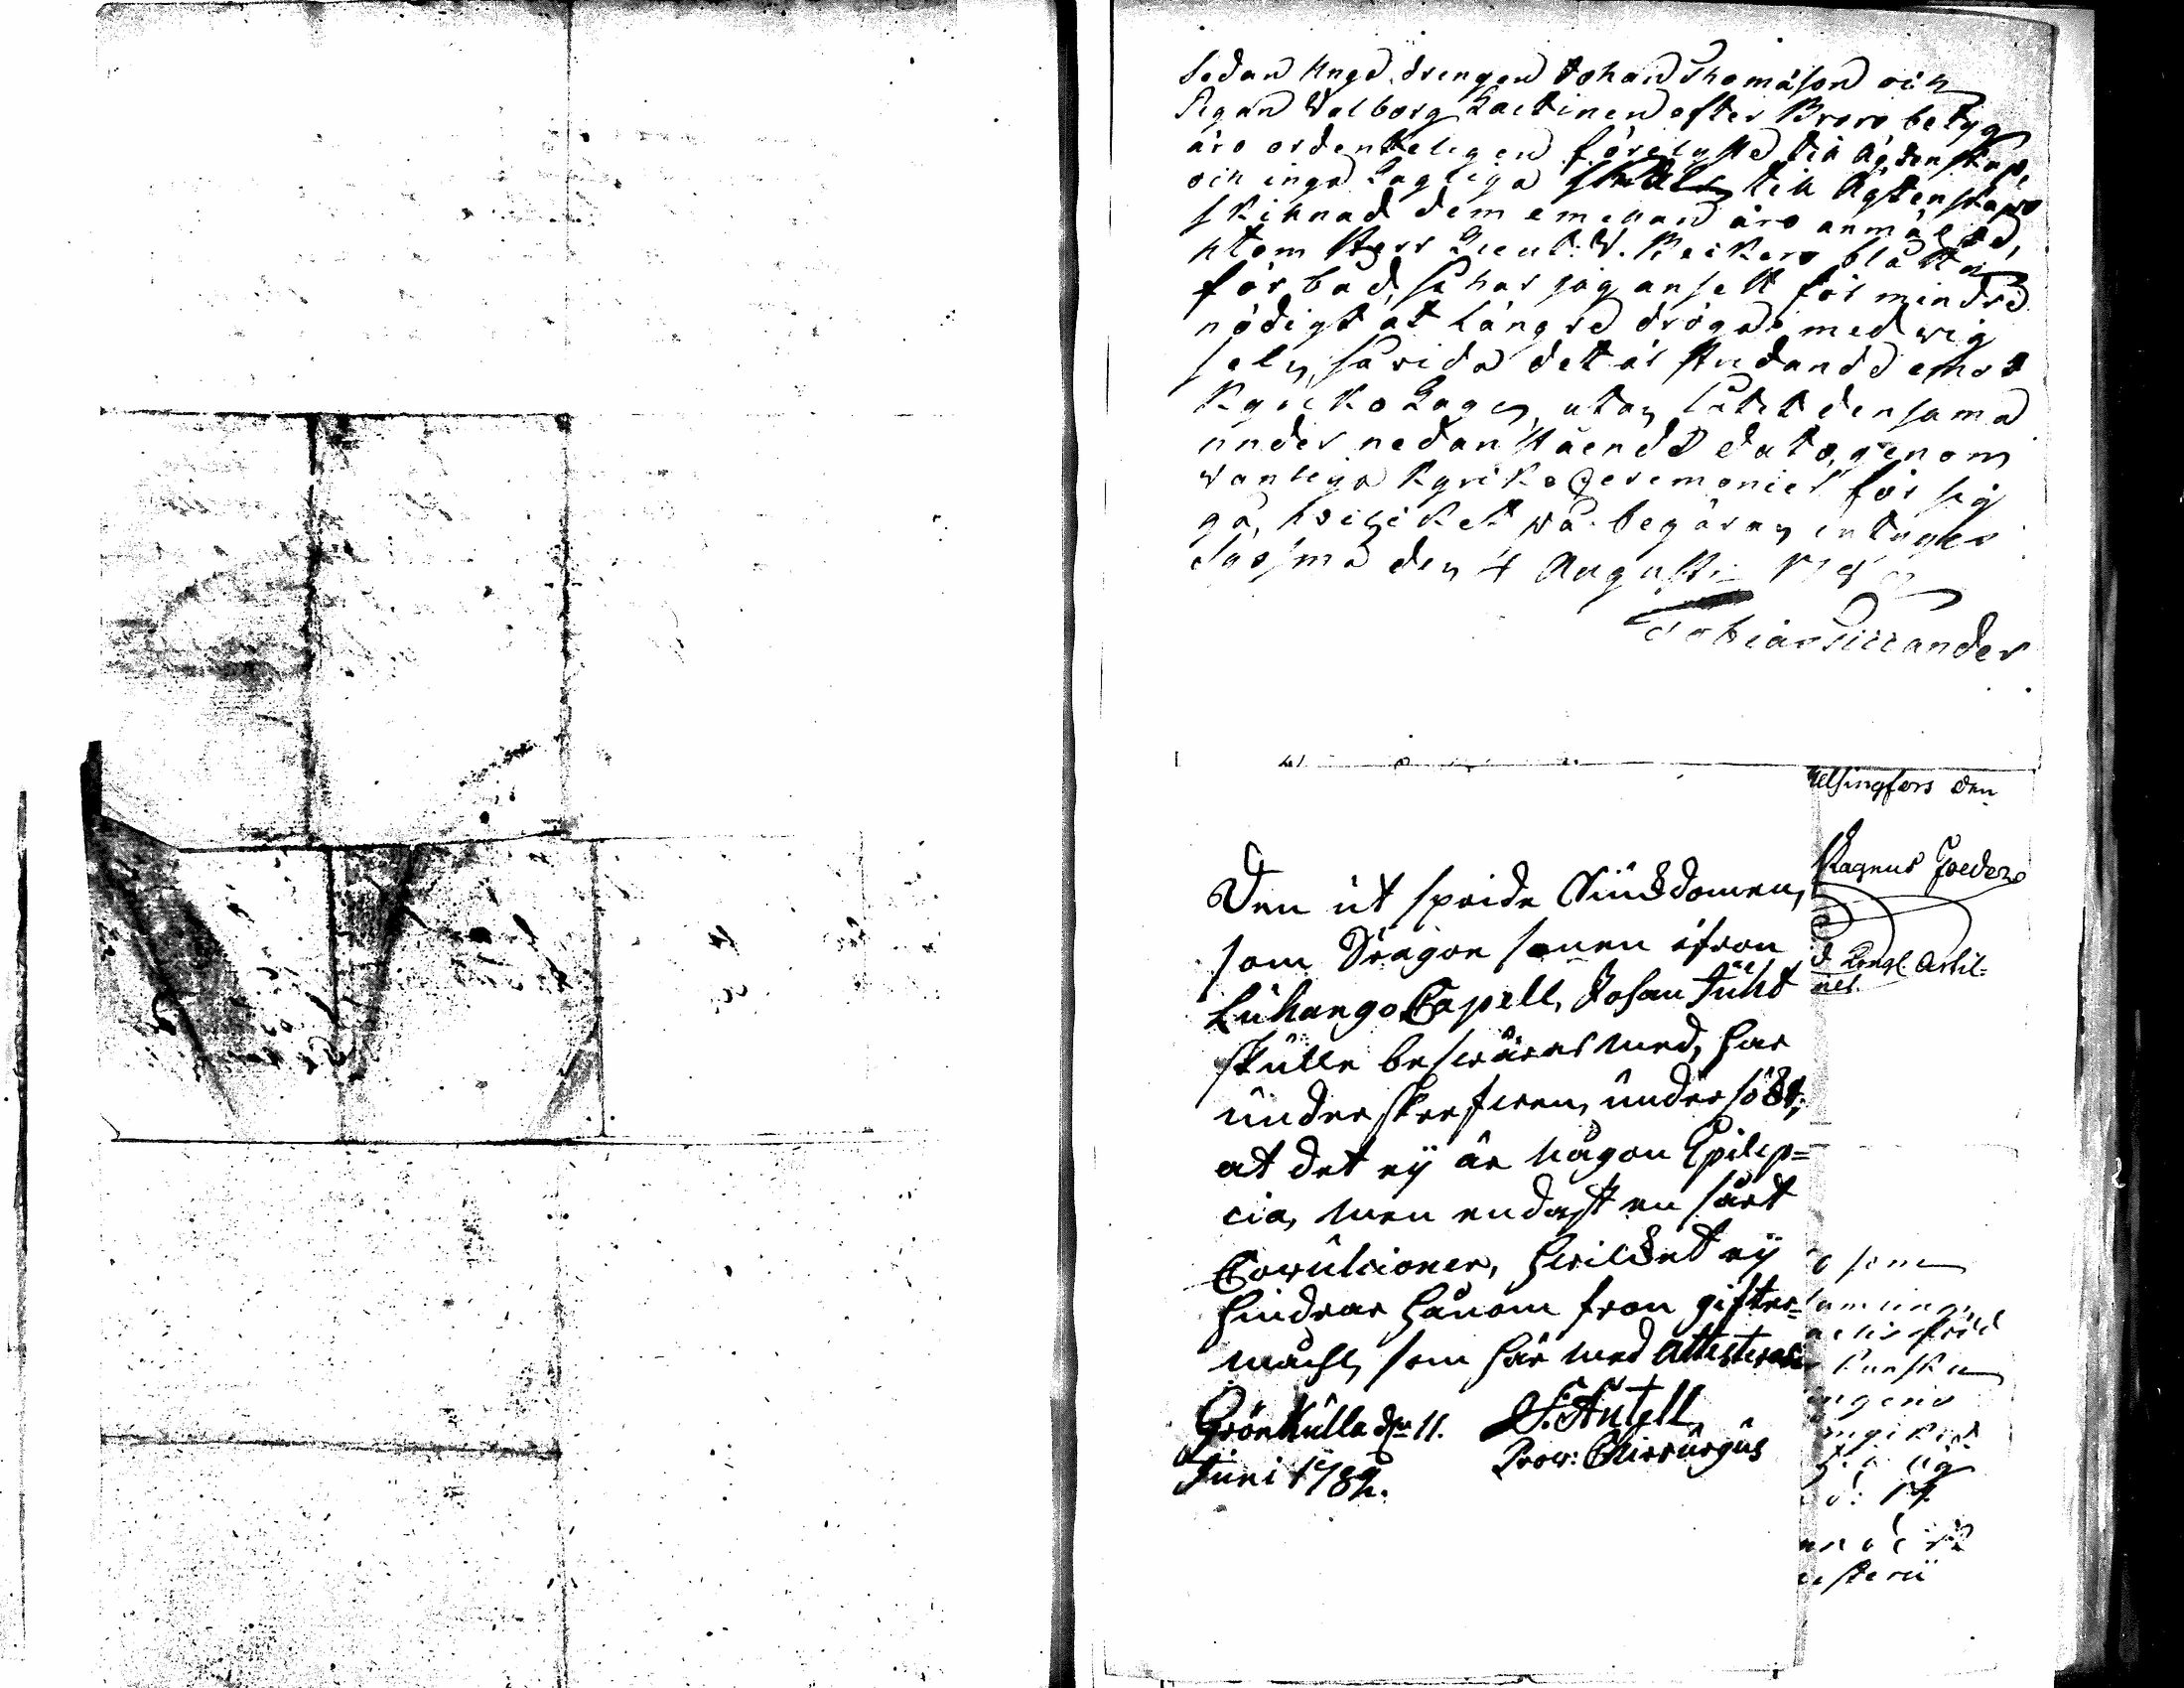 Sedan Unge drengen Johan Thomason och
Pigan Walborg Lactinen efter Brors betyg
äro ordenteligen förelyste till Ägtenskap,
och inga Lagliga skähl till Ägtenskaps
skilnad dem emellan äro anmälte,
utom Herr Lieut: V. Beckers blätta
förbud, så har jag ansett för mindre
nödigt at längre dröga med wig
seln, såvida det är stridande emot
Kyrcko Lagen, utan låtit densama
under nedanstående dato, genom
vanliga Kyrko Ceremonier för sig
gå, hvilcket på begäran intygas
Sysmä den 4 Augusti
Tobias Tillander
Helsingfors den
Magnus
d Kongl. Artil=
Den ut spride Siukdomen,
som Dragon sonen ifron
Luhango Capell, Johan Juht
skulle beswäras med, har
underskrefwen, undersökt;
at det ey är någon Epilep=
cia, men endast en sort
Convulsioner, hvilket ey
hindrar honom fron gifter=
måhl, som här med Attesteras
Grönkulla d 11. S. Antell
Juni 1782. Prov: Chirurgus
som
ingens